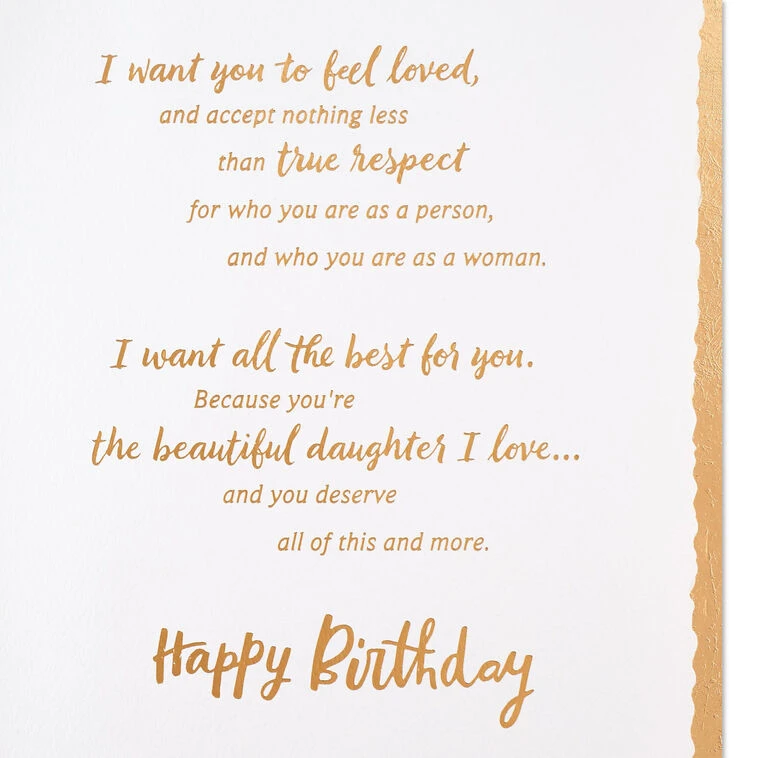 I want you to feel loved,
and accept nothing less
than true respect
for who you are as a person,
and who you are as a woman.
I want all the best for you.
Because you're
the beautiful daughter I love...
and you deserve
all of this and more.
Happy Birthday